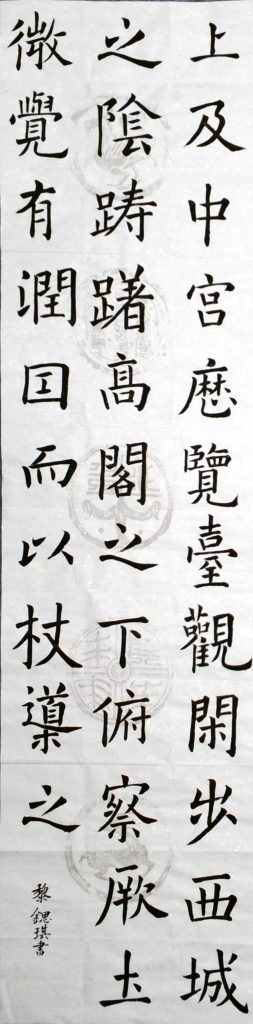 上及中宮歴覽臺觀閑步西城
之陰躊躇高閣之下俯察厥土
微覺有潤因而以杖導之
黎鍶琪書